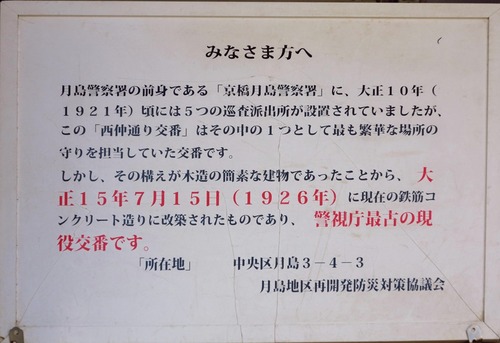 みなさま方へ
月島警察署の前身である「京橋月島警察署」に、大正１０年（
１９２１年）頃には５つの巡査派出所が設置されていましたが、
この「西仲通り交番」はその中の１つとして最も繁華な場所の
守りを担当していた交番です。
しかし、その構えが木造の簡素な建物であったことから、大
正１５年７月１５日（１９２６年）に現在の鉄筋コ
ンクリート造りに改築されたものであり、警視庁最古の現
役交番です。
「所在地」　中央区月島３－４－３
月島地区再開発防災対策協議会